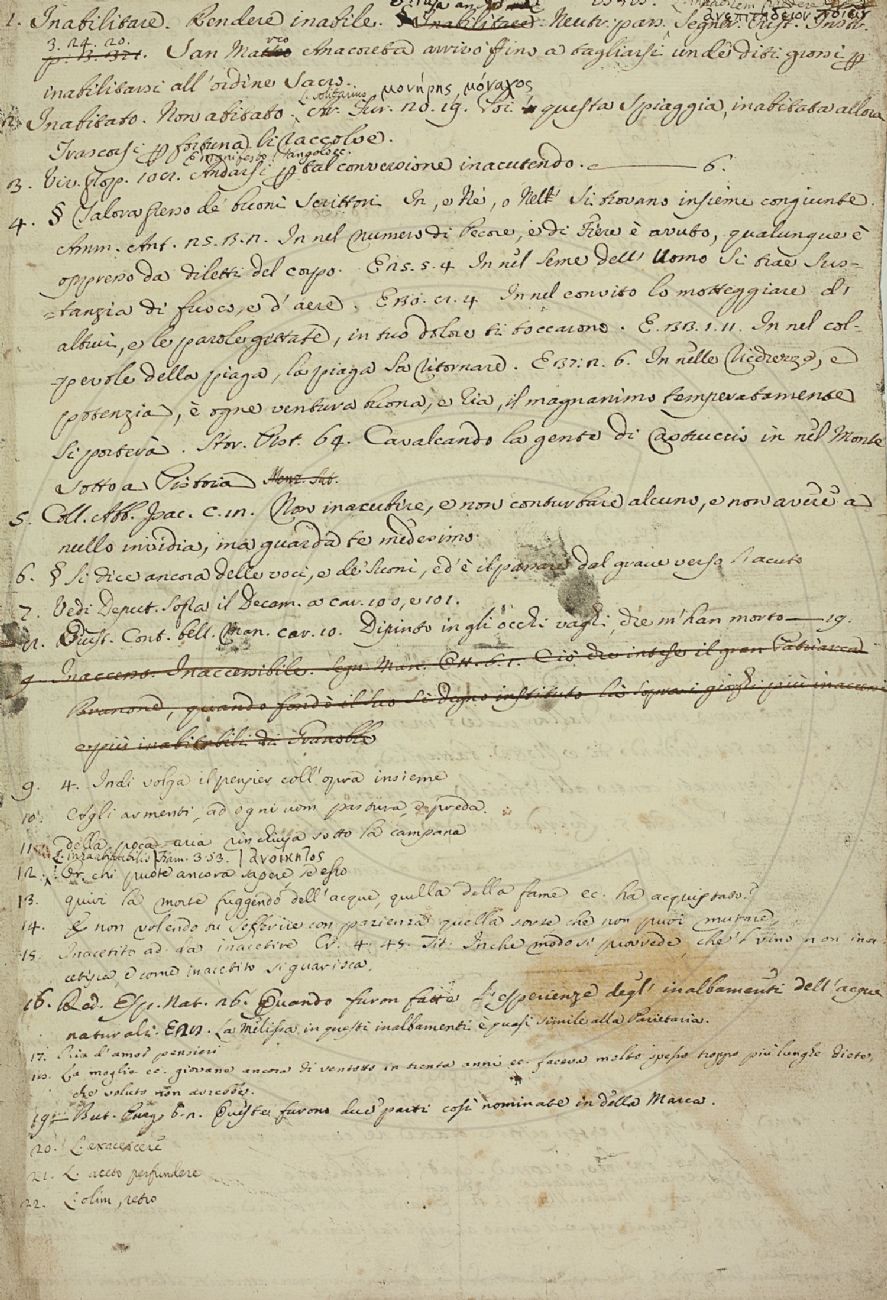 1. Inabilitare. Rendere inabile. § Inabilitare Neutr. pass. Segner. Crist. Instr.
3. 24. 20. San Marco Anacoreta arrivò fino a tagliarsi un de' diti grossi p
inabilitarsi all'ordine Sacro.
L. solitarius μονήρης, μόναχος
2. Inabitato. Non abitato. Cir. 20. 19. Poi questa Spiaggia, inabitata allora
Trascorsi p fortuna li raccolse.
3. Viv. prop. 102. Andarsi p tal conversione inacutendo. 6.
4. § Talora presso de' buoni Scrittori In, e Ne, o Nell' si trovano insieme congiunte.
Amm. Ant. In nel numero di Pecore, e di Fiere è avuto, qualunque è
oppresso da diletti del corpo. E 15. 5. 4 In nel seme dell' Uomo si trae sus-
tanzia di fuoco, e d'aere. E 30. 4 In nel convito lo motteggiare di
altrui, e le parole gittate, in tuo dolore ti toccarono. E 33. 1. 11. In nel col-
pevole della piaga, la piaga fa ritornare. E 37. 2. 6. In nelle ricchezze, e
potenzia, e ogne ventura buona, e ria, il magnanimo temperatamente
si porterà. Stor. Pist. 64. Cavalcando la gente di Castruccio in nel Monte
sotto a Pistoia
5. Coll. Abb. Isac. C. Non inacutire, e non conturbare alcuno, e non avere a
nullo invidia, ma guarda te medesimo.
6. § Si dice ancora delle voci, e de' suoni, ed è il passare dal grave verso l'acuto
7. Vedi Deput. sopra il Decam. a car. 100, e 101.
8. Cont. bell. Man. car. 10. Dipinto in gli occhi vaghi, che m'han morto 19.
9 Inaccesso. Inaccessibile. Segn. Mann. Ott. 6. 1. Ciò che intese il gran Patriarca
Brunone, quando fondò il suo sì degno instituto là sopra i gioghi più inaccessi
e più inabitabili di Granoble
9. 4. Indi volga il pensier coll'opra insieme
10. Agli armenti, ad ogni uom pastura, e preda.
11. della poca aria rinchiusa sotto la campana
L. inhabitabilis 353. ἀνοίκητος
12. Or chi puote ancora sapere se esso
13. quivi la morte fuggendo dell'acque, quella della fame ec. ha acquistato?
14. E non volendo tu sofferire con pazienza quella sorte che non puoi mutare,
15. Inacetito ad. da inacetire Cr. 4. 45. Tit. In che modo si provvede, che 'l vino non ina-
cetisca, e come inacetito si guarisca.
16. Red. Esp. Nat. 26. Quando furon fatte l'esperienze degl' inalbamenti dell'acque
naturali. La Melissa in questi inalbamenti è quasi simile alla Parietaria.
17. Ria d'amor pensieri
18. La moglie ec. giovane ancora di ventotto in trenta anni ec. faceva molto spesso troppo più lunghe diete,
che voluto non avrebbe.
19. But. Purg. 6. 2. Queste furono due parti così nominate in della Marca.
20. L. exacescere
21. L. aceto perfundere
22. L. olim, retro